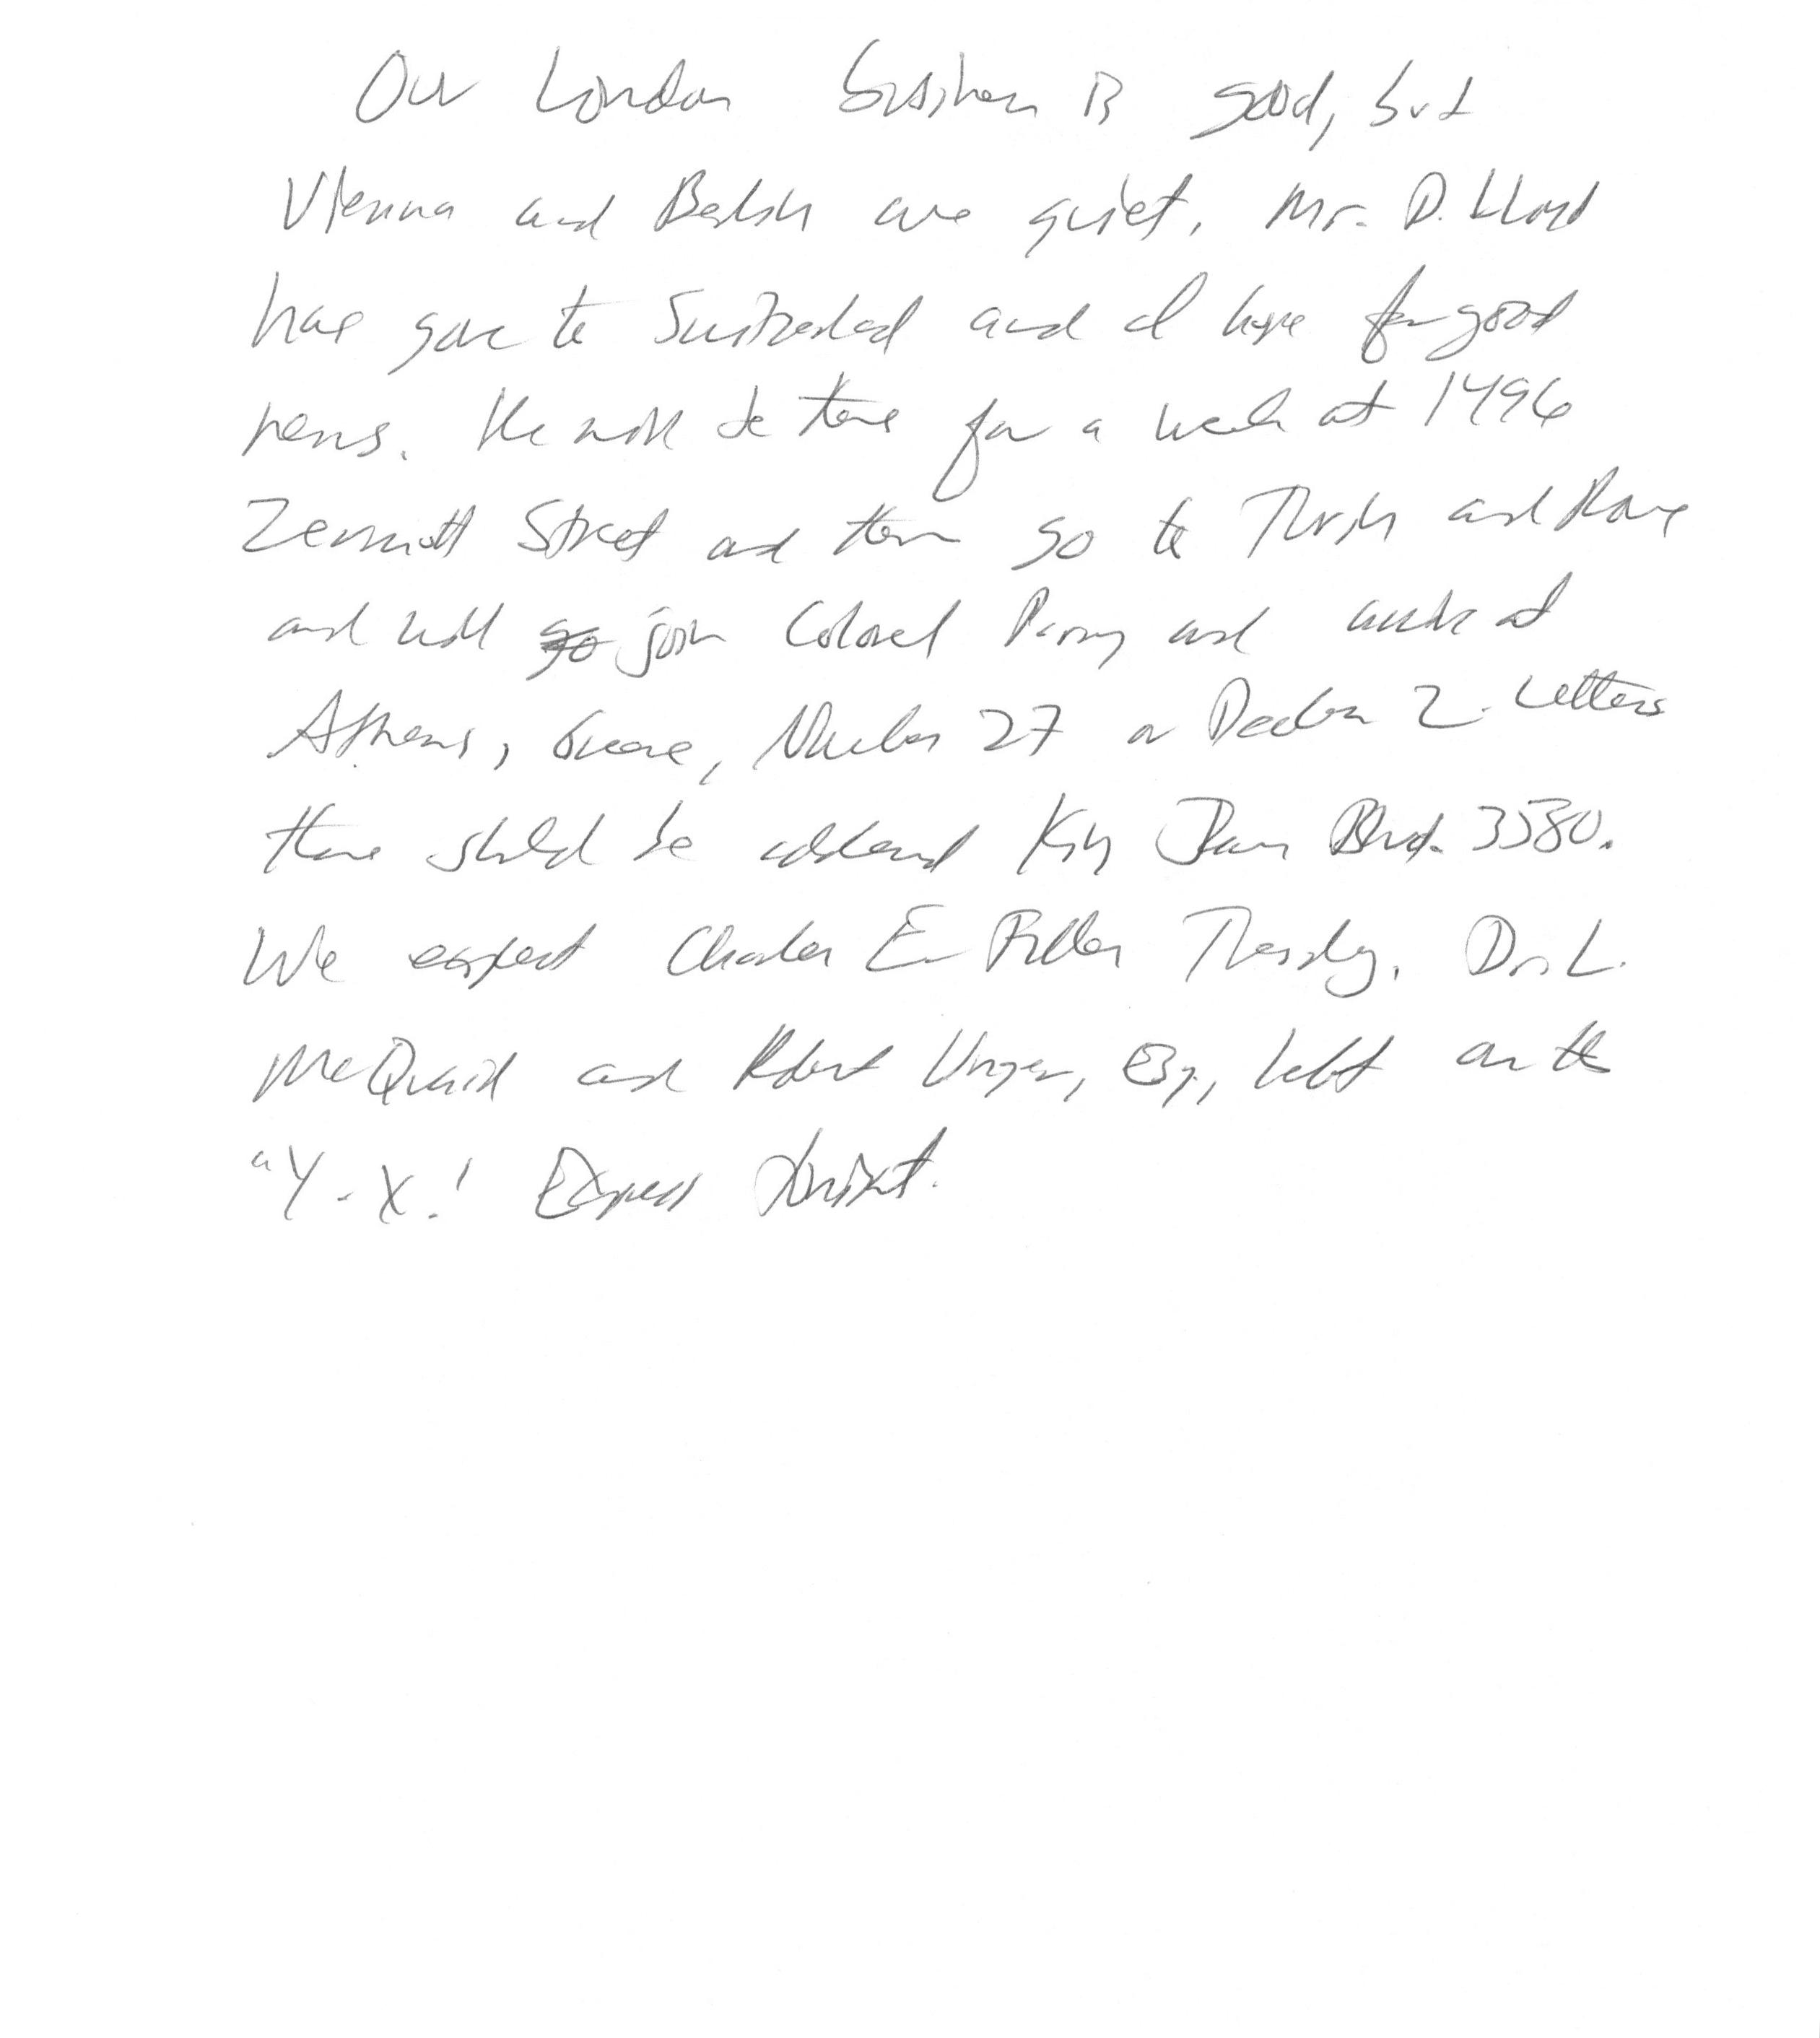 Our London business is good, but
Vienna and Berlin are quiet. Mr. D. Lloyd
has gone to Switzerland and I hope for good
news. He will be there for a week at 1496
Zermott Street and then go to Turin and Rome
and will go join Colonel Parry and arrive at
Athens, Greece, November 27 or December 2. Letters
there should be addressed King James Blvd. 3580.
We expect Charles E. Fuller Tuesday. Dr. L.
McQuaid and Robert Unger, Esq., left on the
"Y. X." Express tonight.